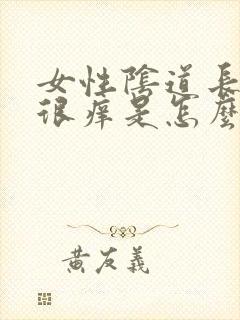 女性陰道長
很痒是怎麼
黄友義